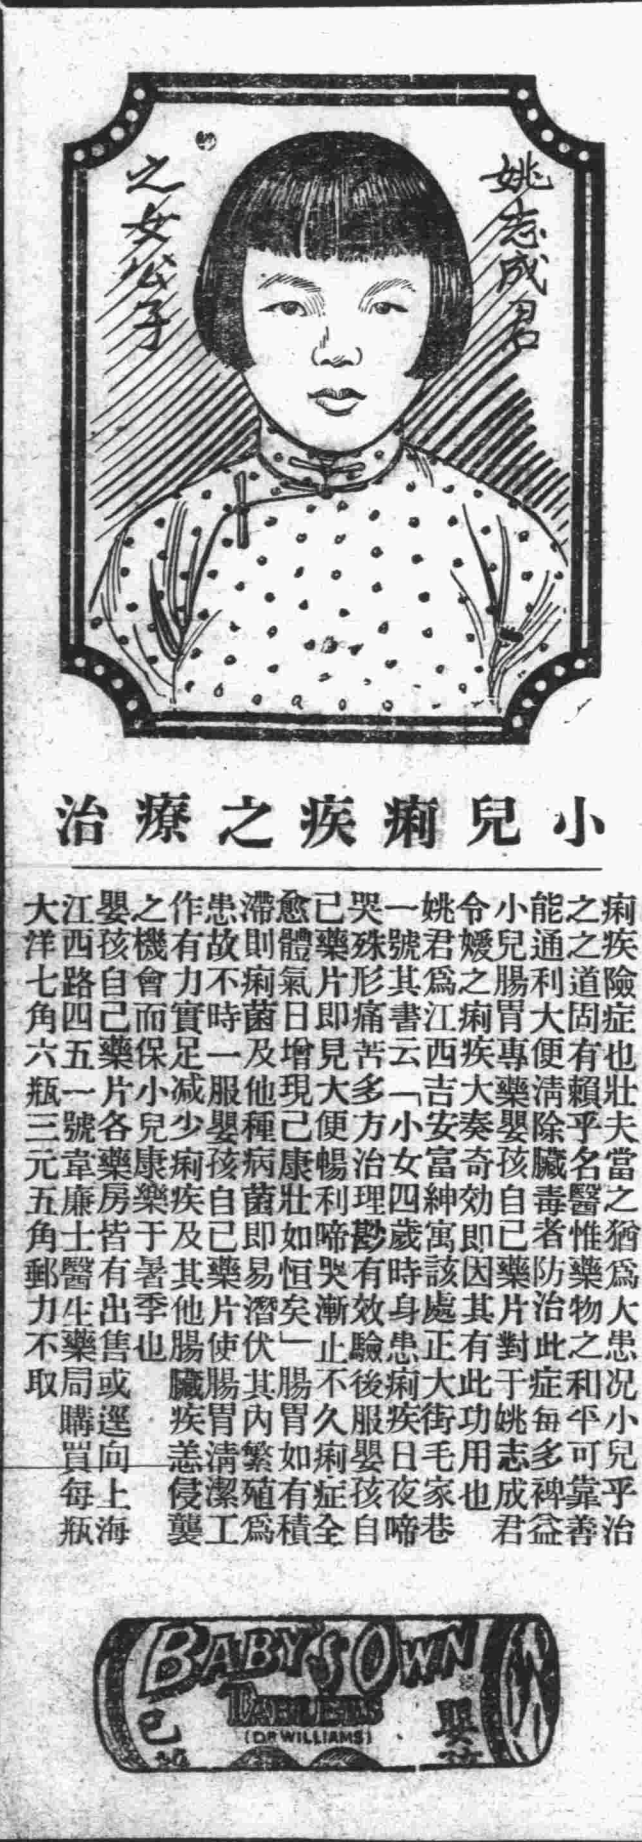 姚志成君
之女公子
小兒痢疾之療治
痢疾險症也壯夫當之猶爲大患况小兒乎治
之之道固有賴乎名醫惟藥物之和平可靠善
能通利大便淸除臟毒者防治此症每多裨益
小兒腸胃專藥嬰孩自己藥片對于姚志成君
令嬡之痢疾大奏奇効即因其有此功用也
姚君爲江西吉安富紳寓該處正大街毛家巷
一號其書云「小女四歲時身患痢疾日夜啼
哭殊形痛苦多方治理尠有效驗後服嬰孩自
己藥片即見大便暢利啼哭漸止不久痢症全
愈體氣日增現己康壯如恒矣」腸胃如有積
滯則痢菌及他種病菌即易潛伏其內繁殖爲
患故不時一服嬰孩自己藥片使腸胃淸潔工
作有力實足减少痢疾及其他腸臟疾恙侵襲
之機會而保小兒康樂于暑季也
嬰孩自己藥片各藥房皆有出售或逕向上海
江西路四五一號韋廉士醫生藥局購買每瓶
大洋七角六瓶三元五角郵力不取
BABY'S OWN
TABLETS
(DR WILLIAMS)
嬰孩
己